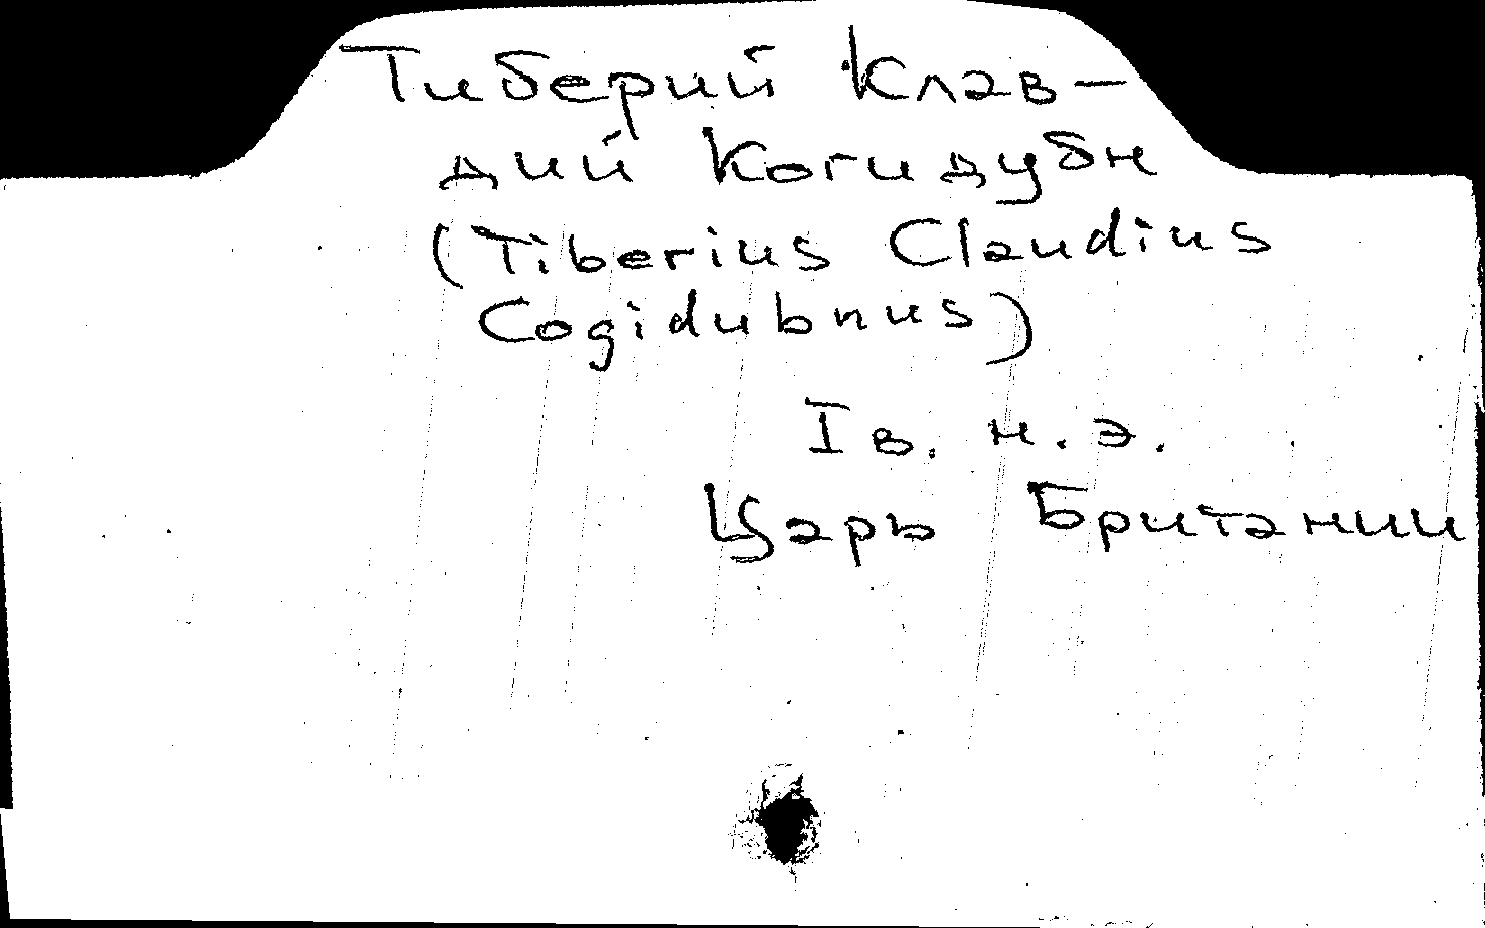 Тиберий Клав-
дий Когидубн
(Tiberius Claudius
Cogidubnus)
I в. н.э.
Царь Британии